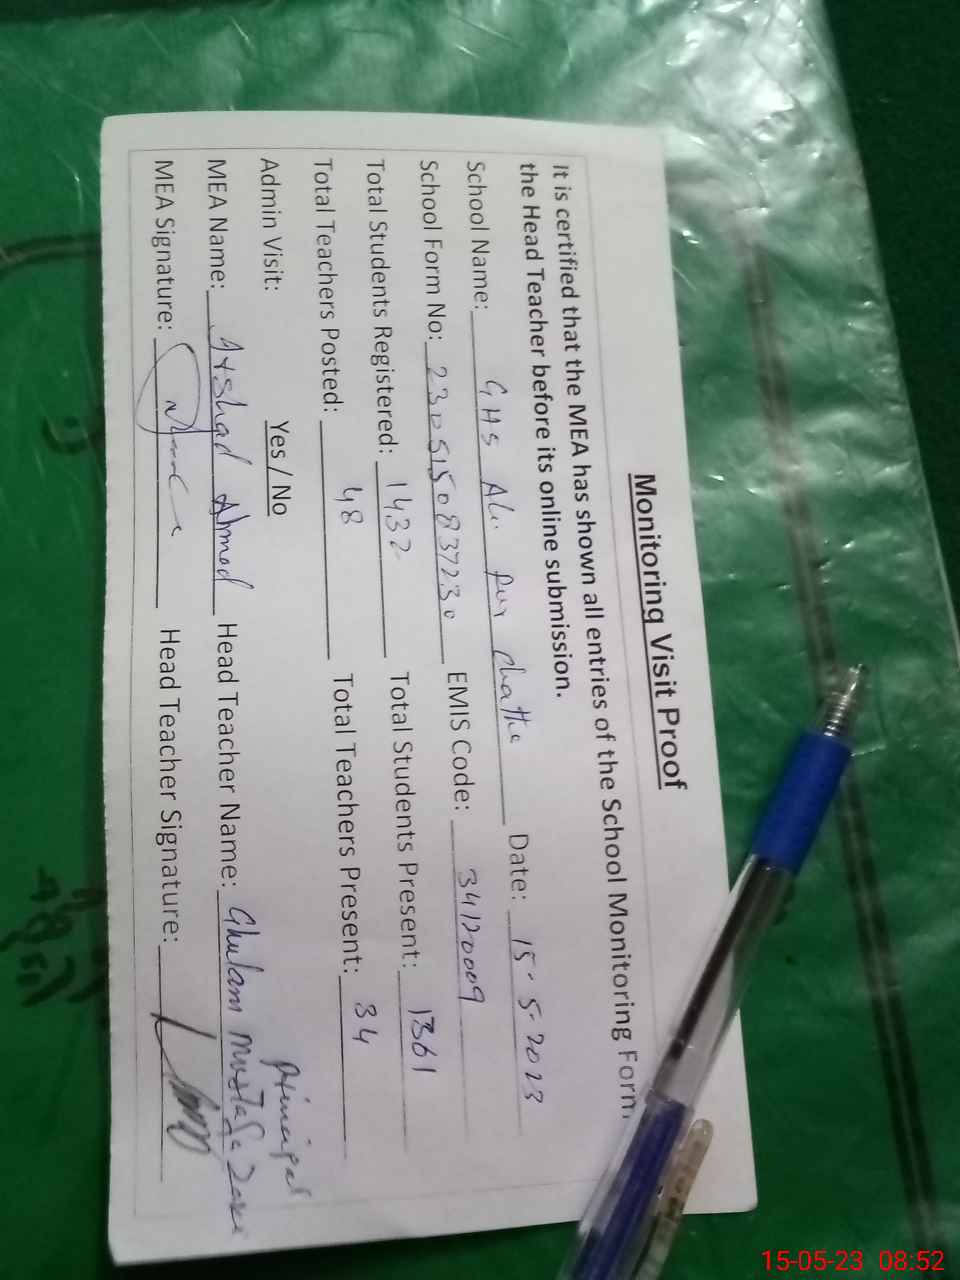 Monitoring Visit Proof
It is certified that the MEA has shown all entries of the School Monitoring Form
the Head Teacher before its online submission.
School Name: GHS Ali pur chatha Date: 15-5-2023
School Form No: 2305150837230 EMIS Code: 34120009
Total Students Registered: 1432 Total Students Present: 1361
Total Teachers Posted: 48 Total Teachers Present: 34
Admin Visit: Yes / No
Principal
MEA Name: Arshad Ahmad Head Teacher Name: Ghulam Mustafa
MEA Signature: Head Teacher Signature:
15-05-23 08:52